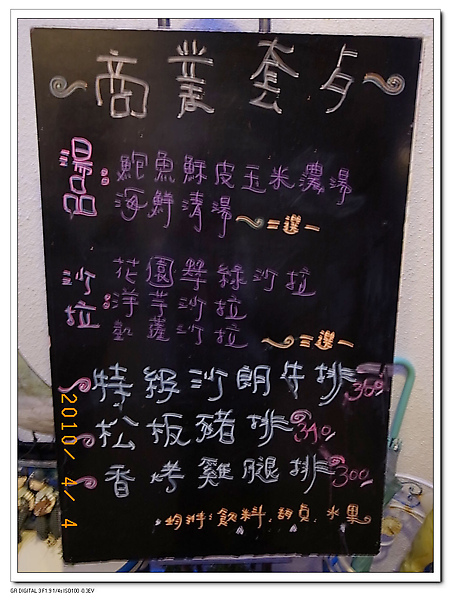 商業套歺
湯品:
魚酥皮玉米濃湯
海鮮清湯
~二選一
沙拉:
花園翠綠沙拉
洋芋沙拉
沙拉
~三選一
特級沙朗牛排360
松板豬排340
香烤雞腿排300
均附:飲料.甜点.水果
2010/ 4/ 4
GR DIGITAL 3 F1.9 1/4s ISO100 -0.3EV